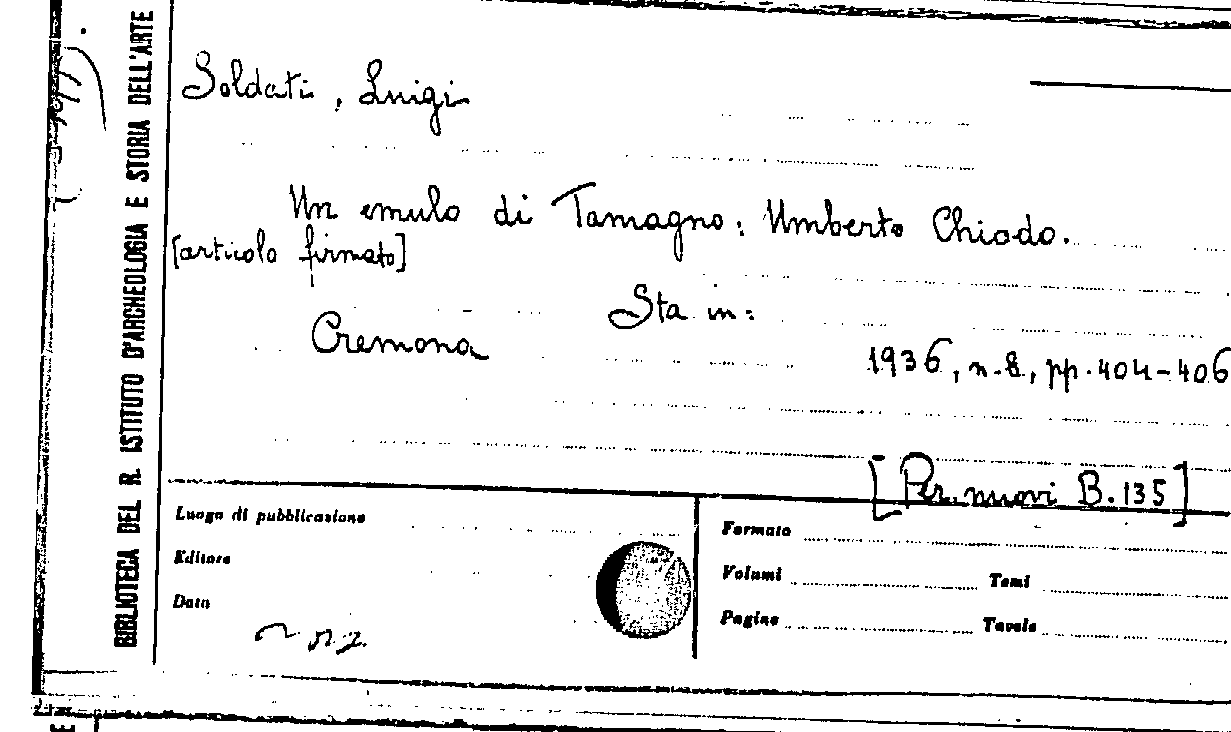 BIBLIOTECA DEL R. ISTITUTO D'ARCHEOLOGIA E STORIA DELL'ARTE
Soldati, Luigi
Un emulo di Tamagno: Umberto Chiodo.
[articolo firmato]
Sta in:
Cremona 1936, n.8, pp.404-406
[Per. nuovi B.135]
Luogo di pubblicazione
Editore
Data
Formato
Volumi Tomi
Pagine Tavole